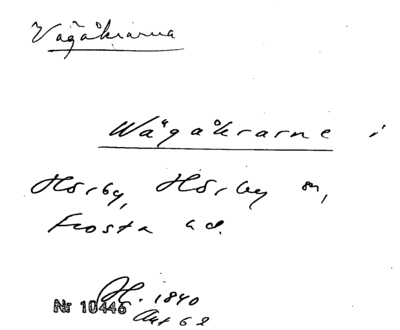 Vägåkrarna
Wägåkrarne i
Hörby, Hörby sn,
Frosta hd.
H. 1840
Nr 10446
Akt 62